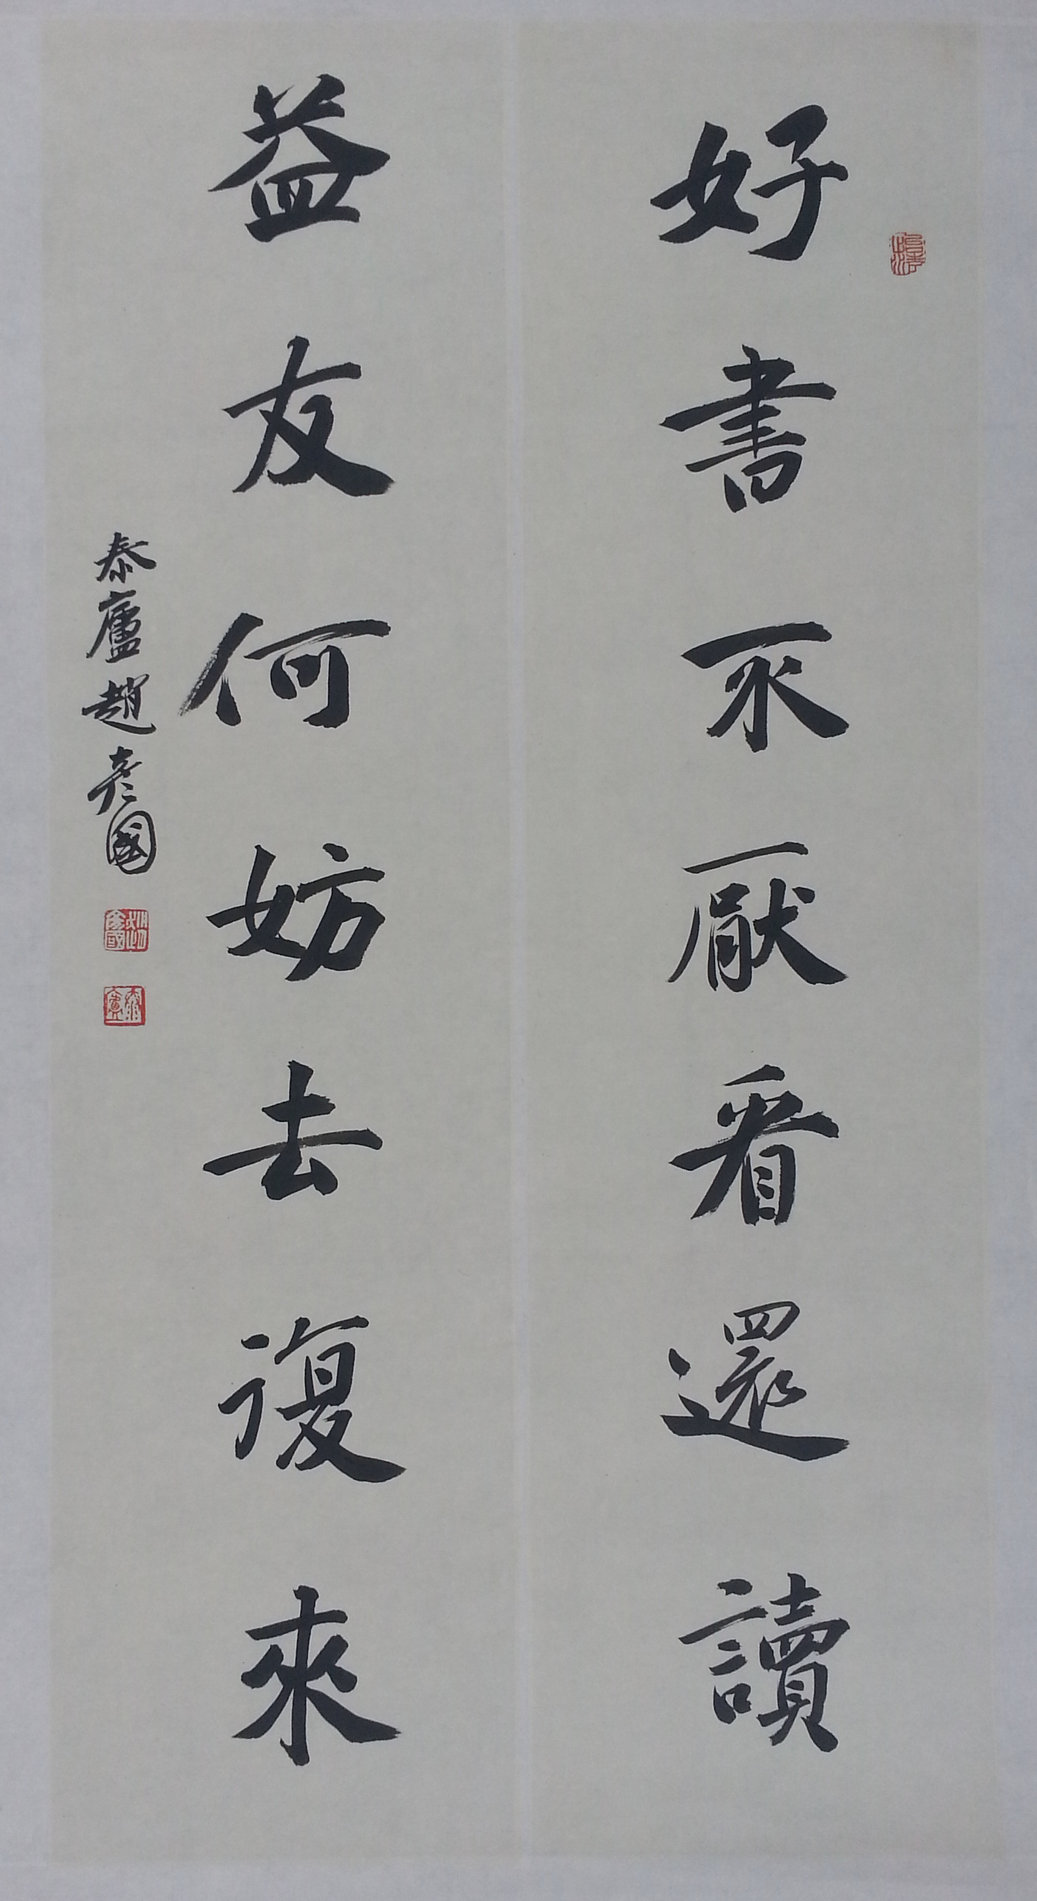 好書不厭看還讀
益友何妨去復來
泰廬趙彥國